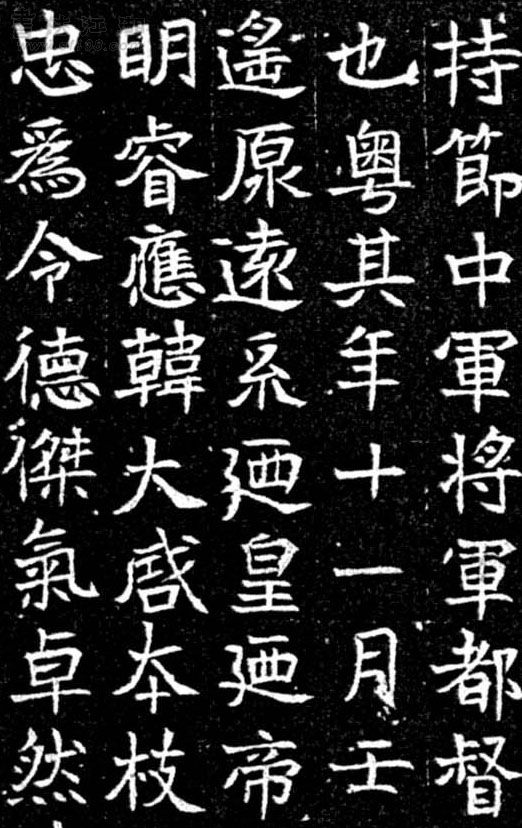 持節中軍將軍都督
也粵其年十一月壬
遙原遠系廼皇廼帝
明睿應韓大啓本枝
忠爲令德傑氣卓然